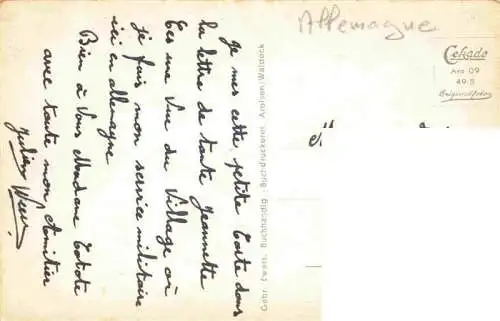 Je mes cette petite Carte dans
la lettre de tante Jeannette
Ces une Vue du Village où
je fais mon service militaire
ici en allemagne
Bien à Vous Madame
avec toute mon Amitier
Julien
Allemagne
Cekado
Aro 09
49.5
Gebr. Ewers, Buchhandlg. - Buchdruckerei Arolsen/Waldeck